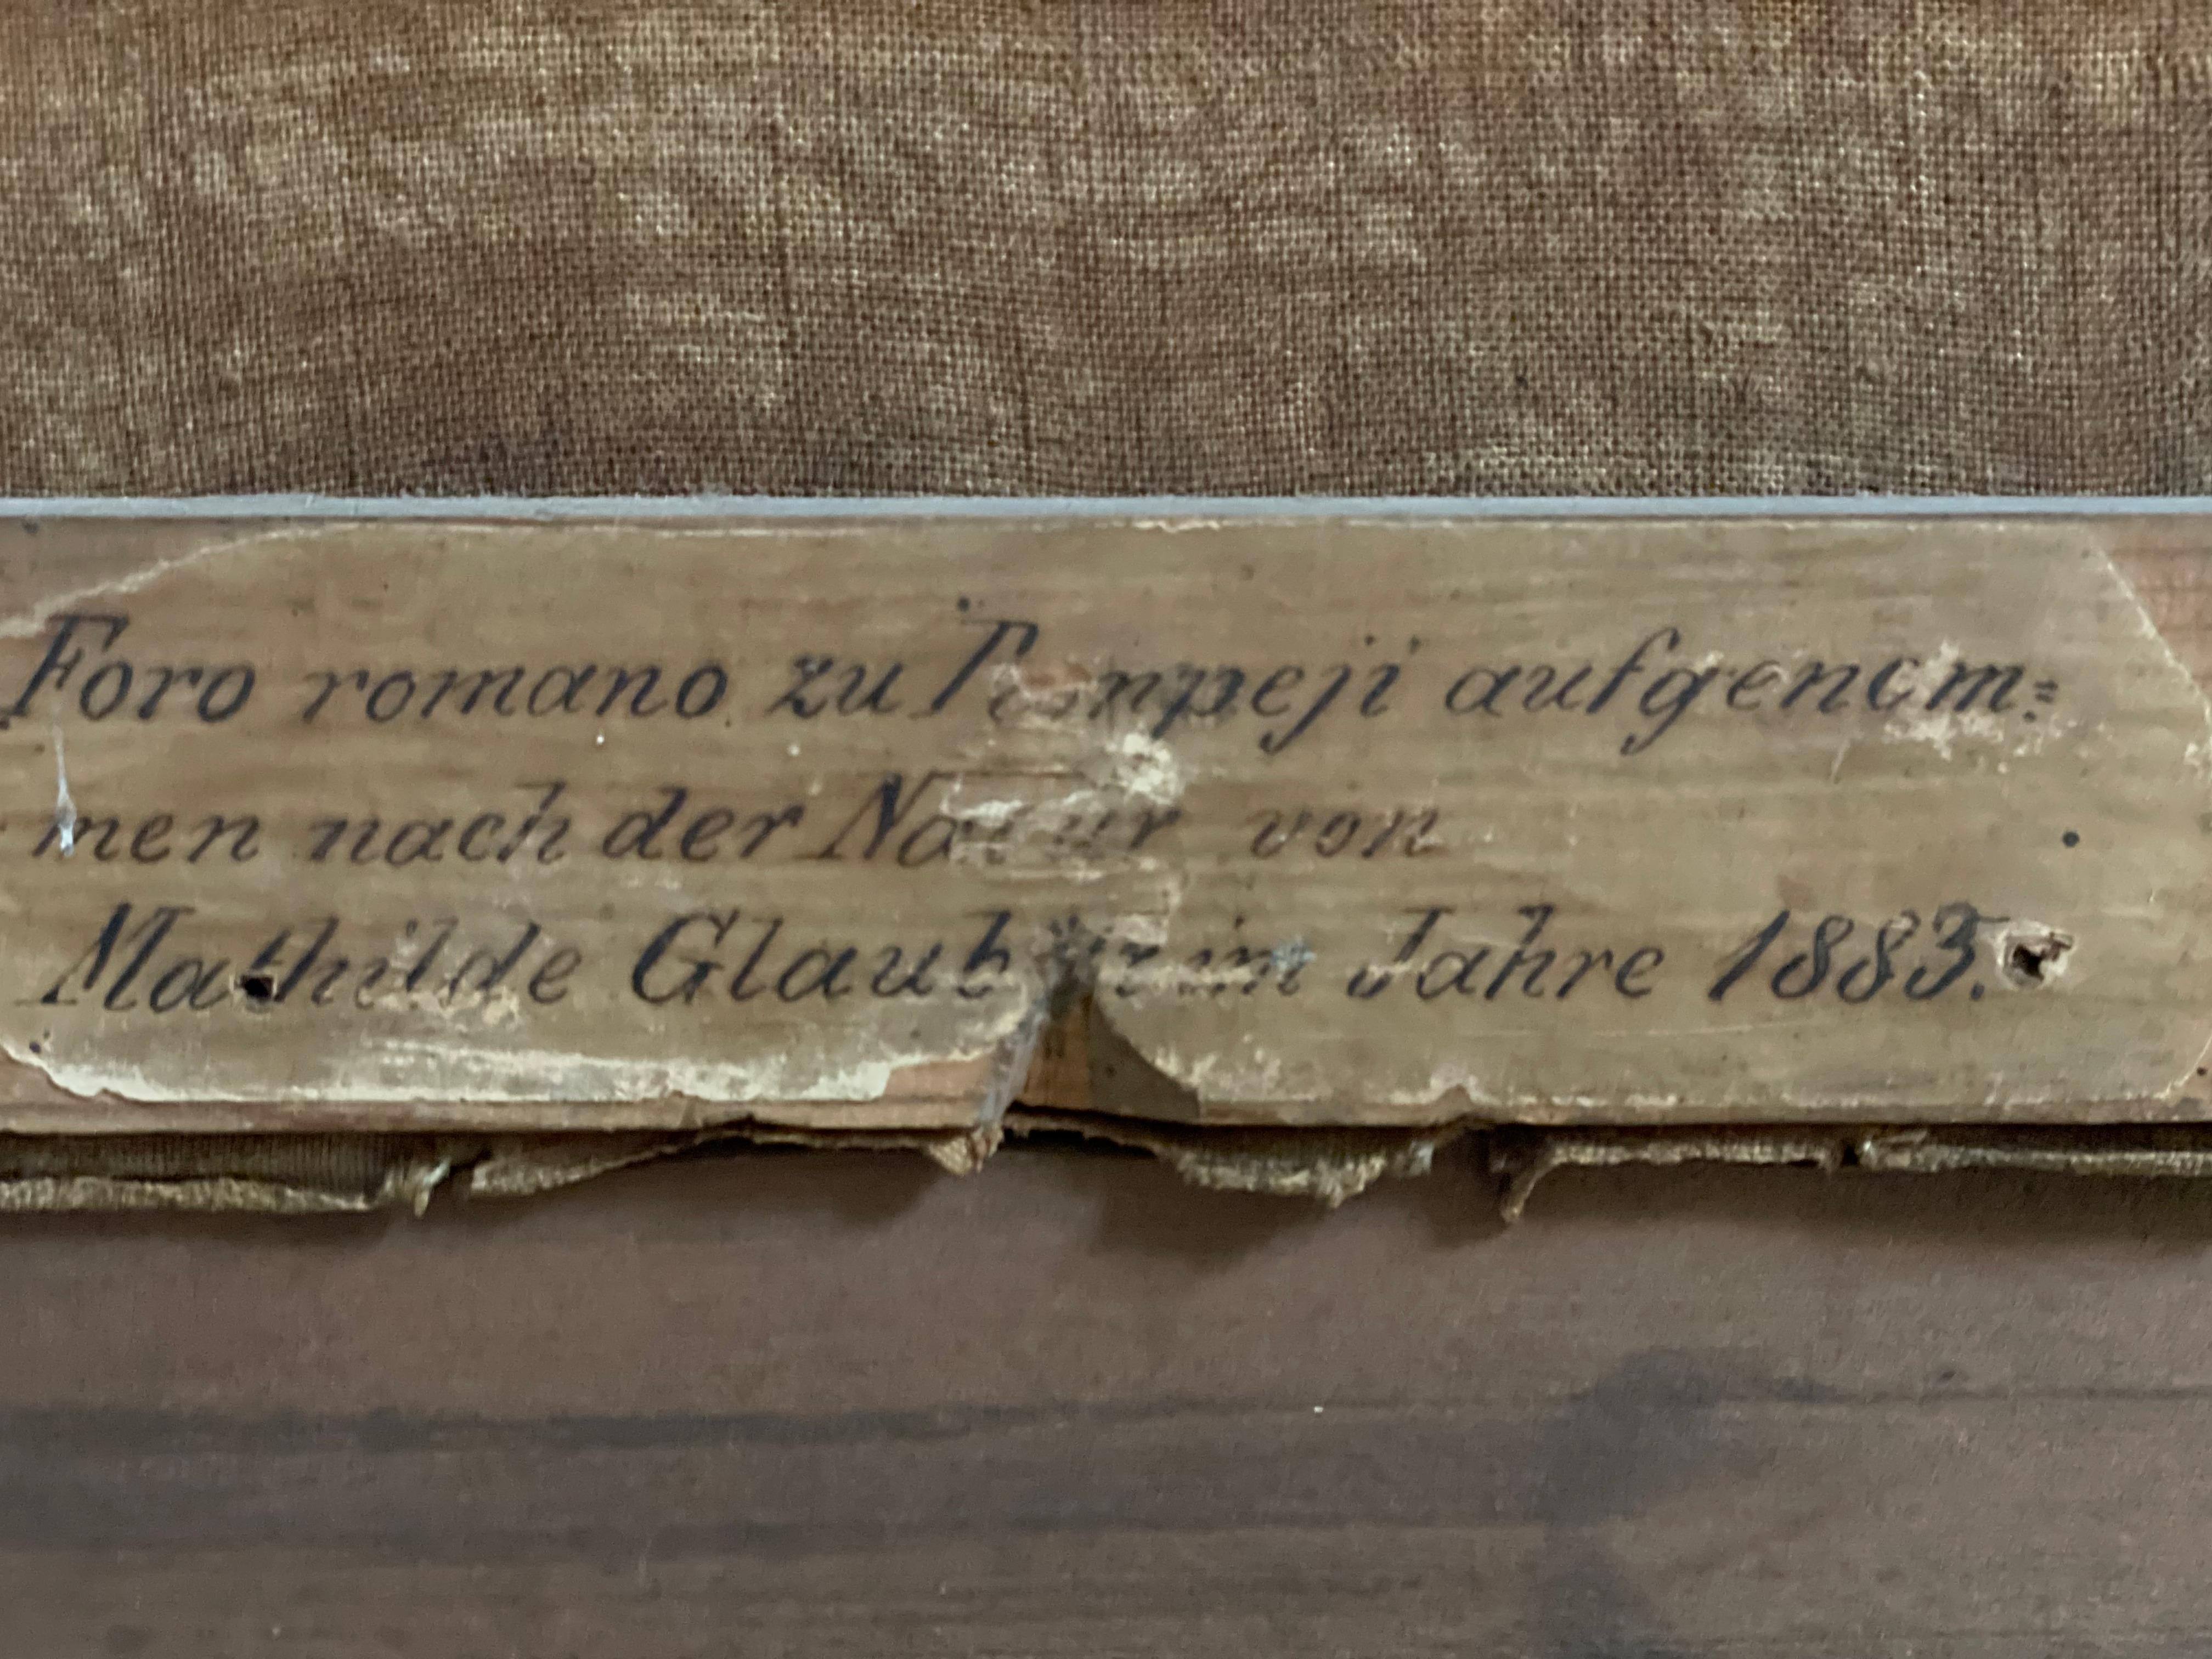 Foro romano zu Pompeji aufgenom=
men nach der Natur von
Mathilde im Jahre 1883.